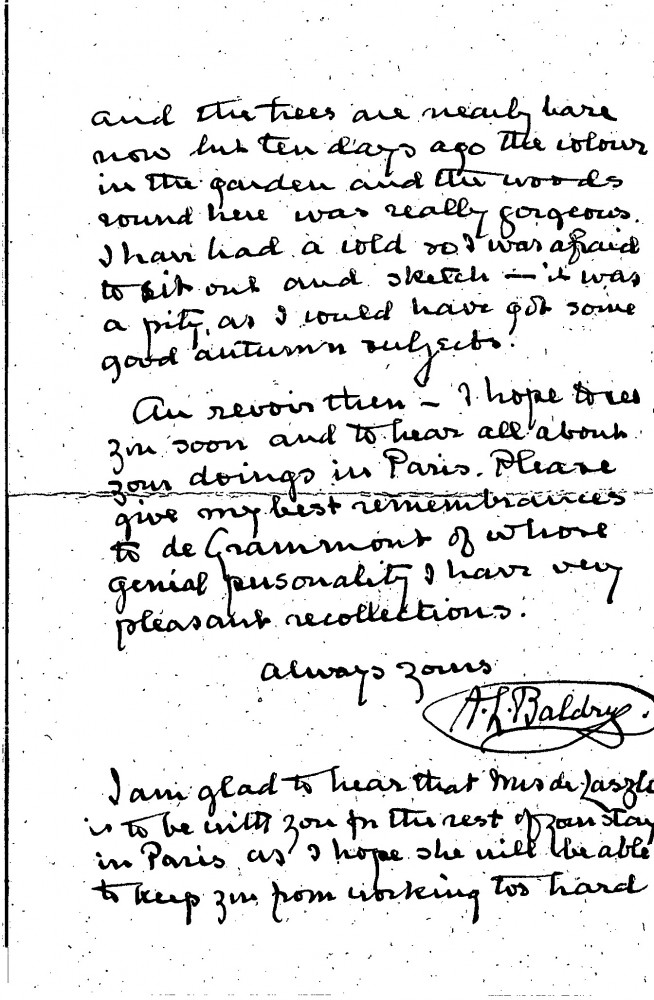 and the trees are nearly bare
now but ten days ago the colour
in the garden and the woods
round here was really gorgeous.
I have had a cold so I was afraid
to sit out and sketch – it was
a pity, as I could have got some
good autumn subjects.
Au revoir then – I hope to see
you soon and to hear all about
your doings in Paris. Please
give my best remembrances
to de Grammont of whose
genial personality I have very
pleasant recollections.
Always yours
A.L. Baldry.
I am glad to hear that Mrs de Laszlo
is to be with you for the rest of your stay
in Paris as I hope she will be able
to keep you from working too hard